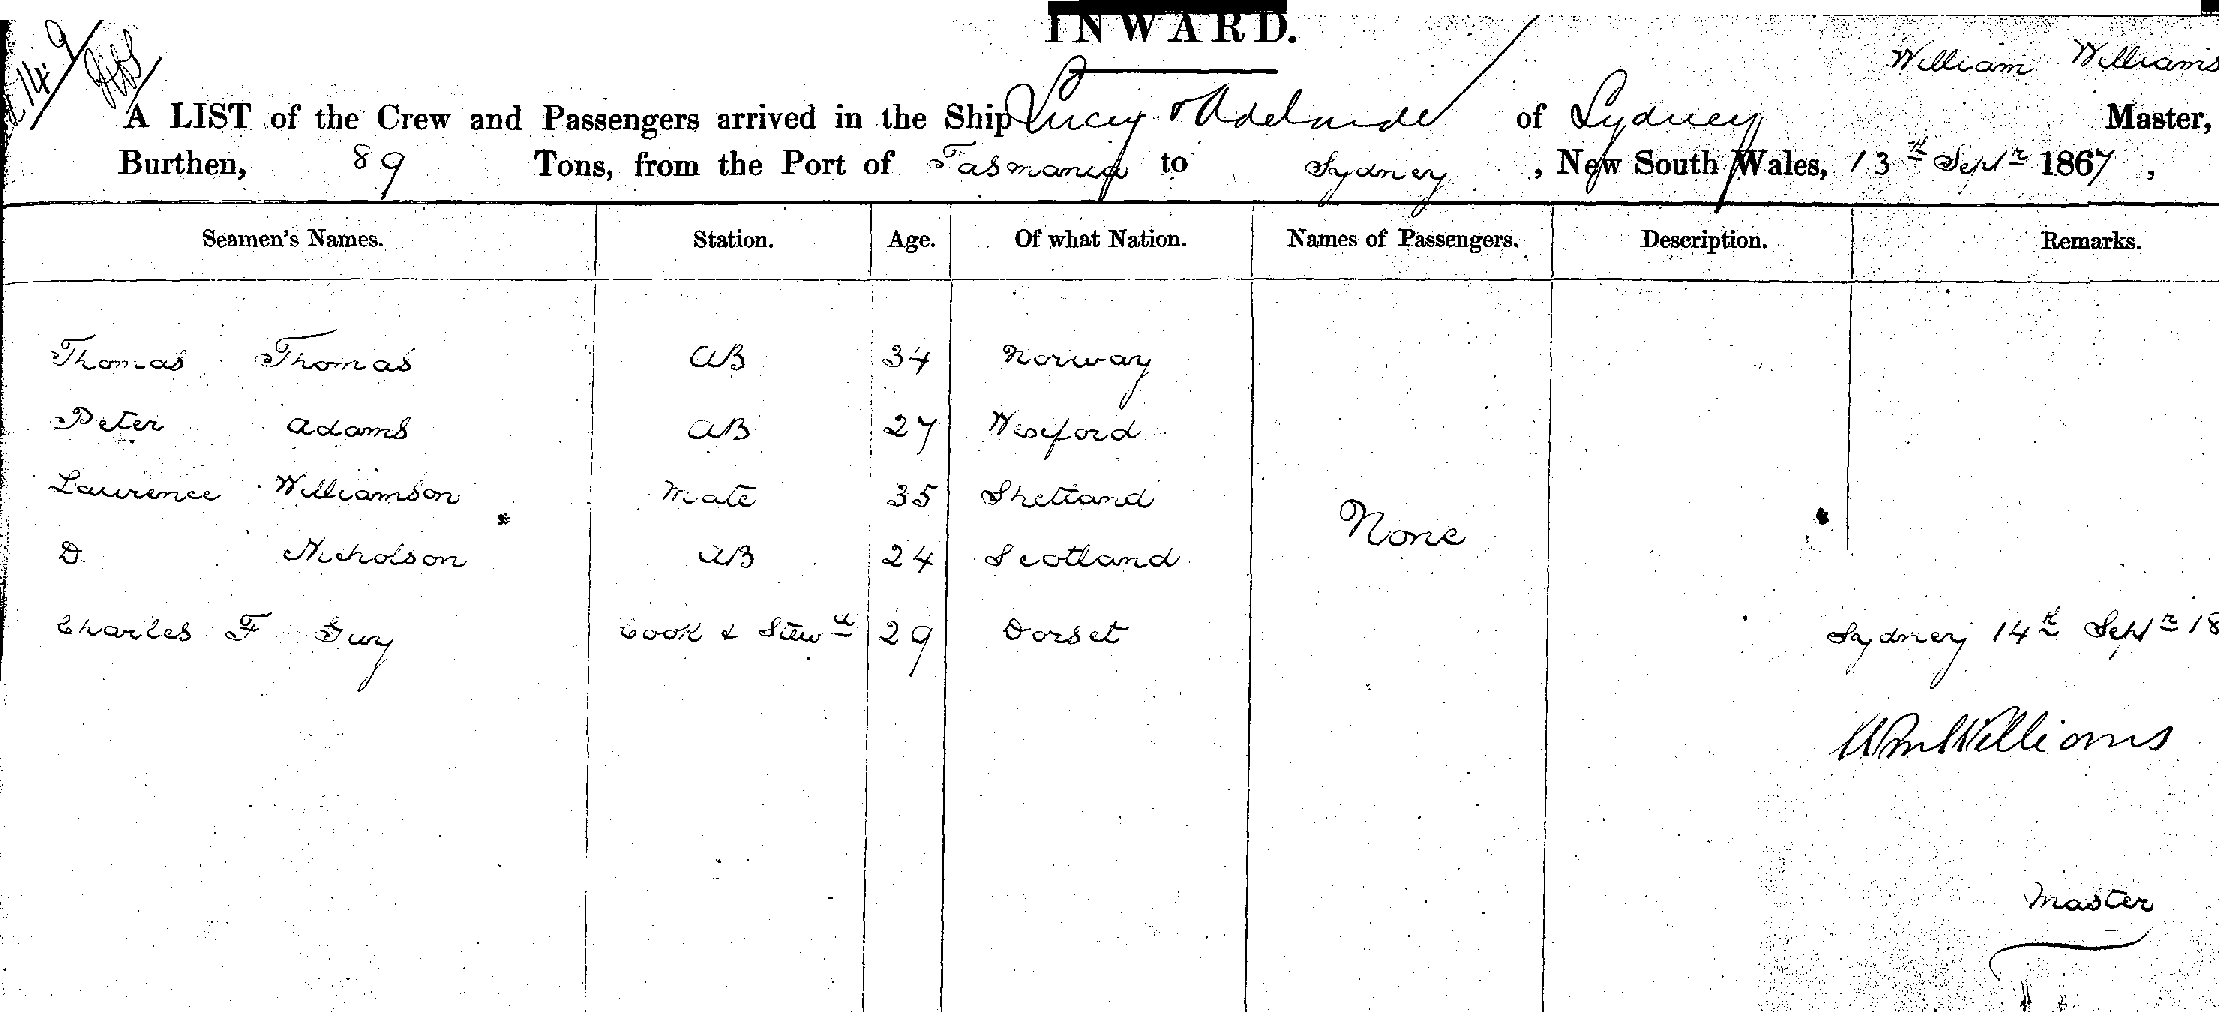 INWARD.
William Williams
A LIST of the Crew and Passengers arrived in the Ship Lucy & Adelaide of Sydney Master,
Burthen, 89 Tons, from the Port of Tasmania to Sydney, New South Wales, 13th Septr 1867,
Seamen's Names. Station. Age. Of what Nation. Names of Passengers. Description. Remarks.
Thomas Thomas AB 34 Norway
Peter Adams AB 27 Wexford
Laurence Williamson Mate 35 Shetland
None
D Nicholson AB 24 Scotland
Charles F Guy Cook & Stewd 29 Dorset Sydney 14th Septr 18
Wm Williams
Master